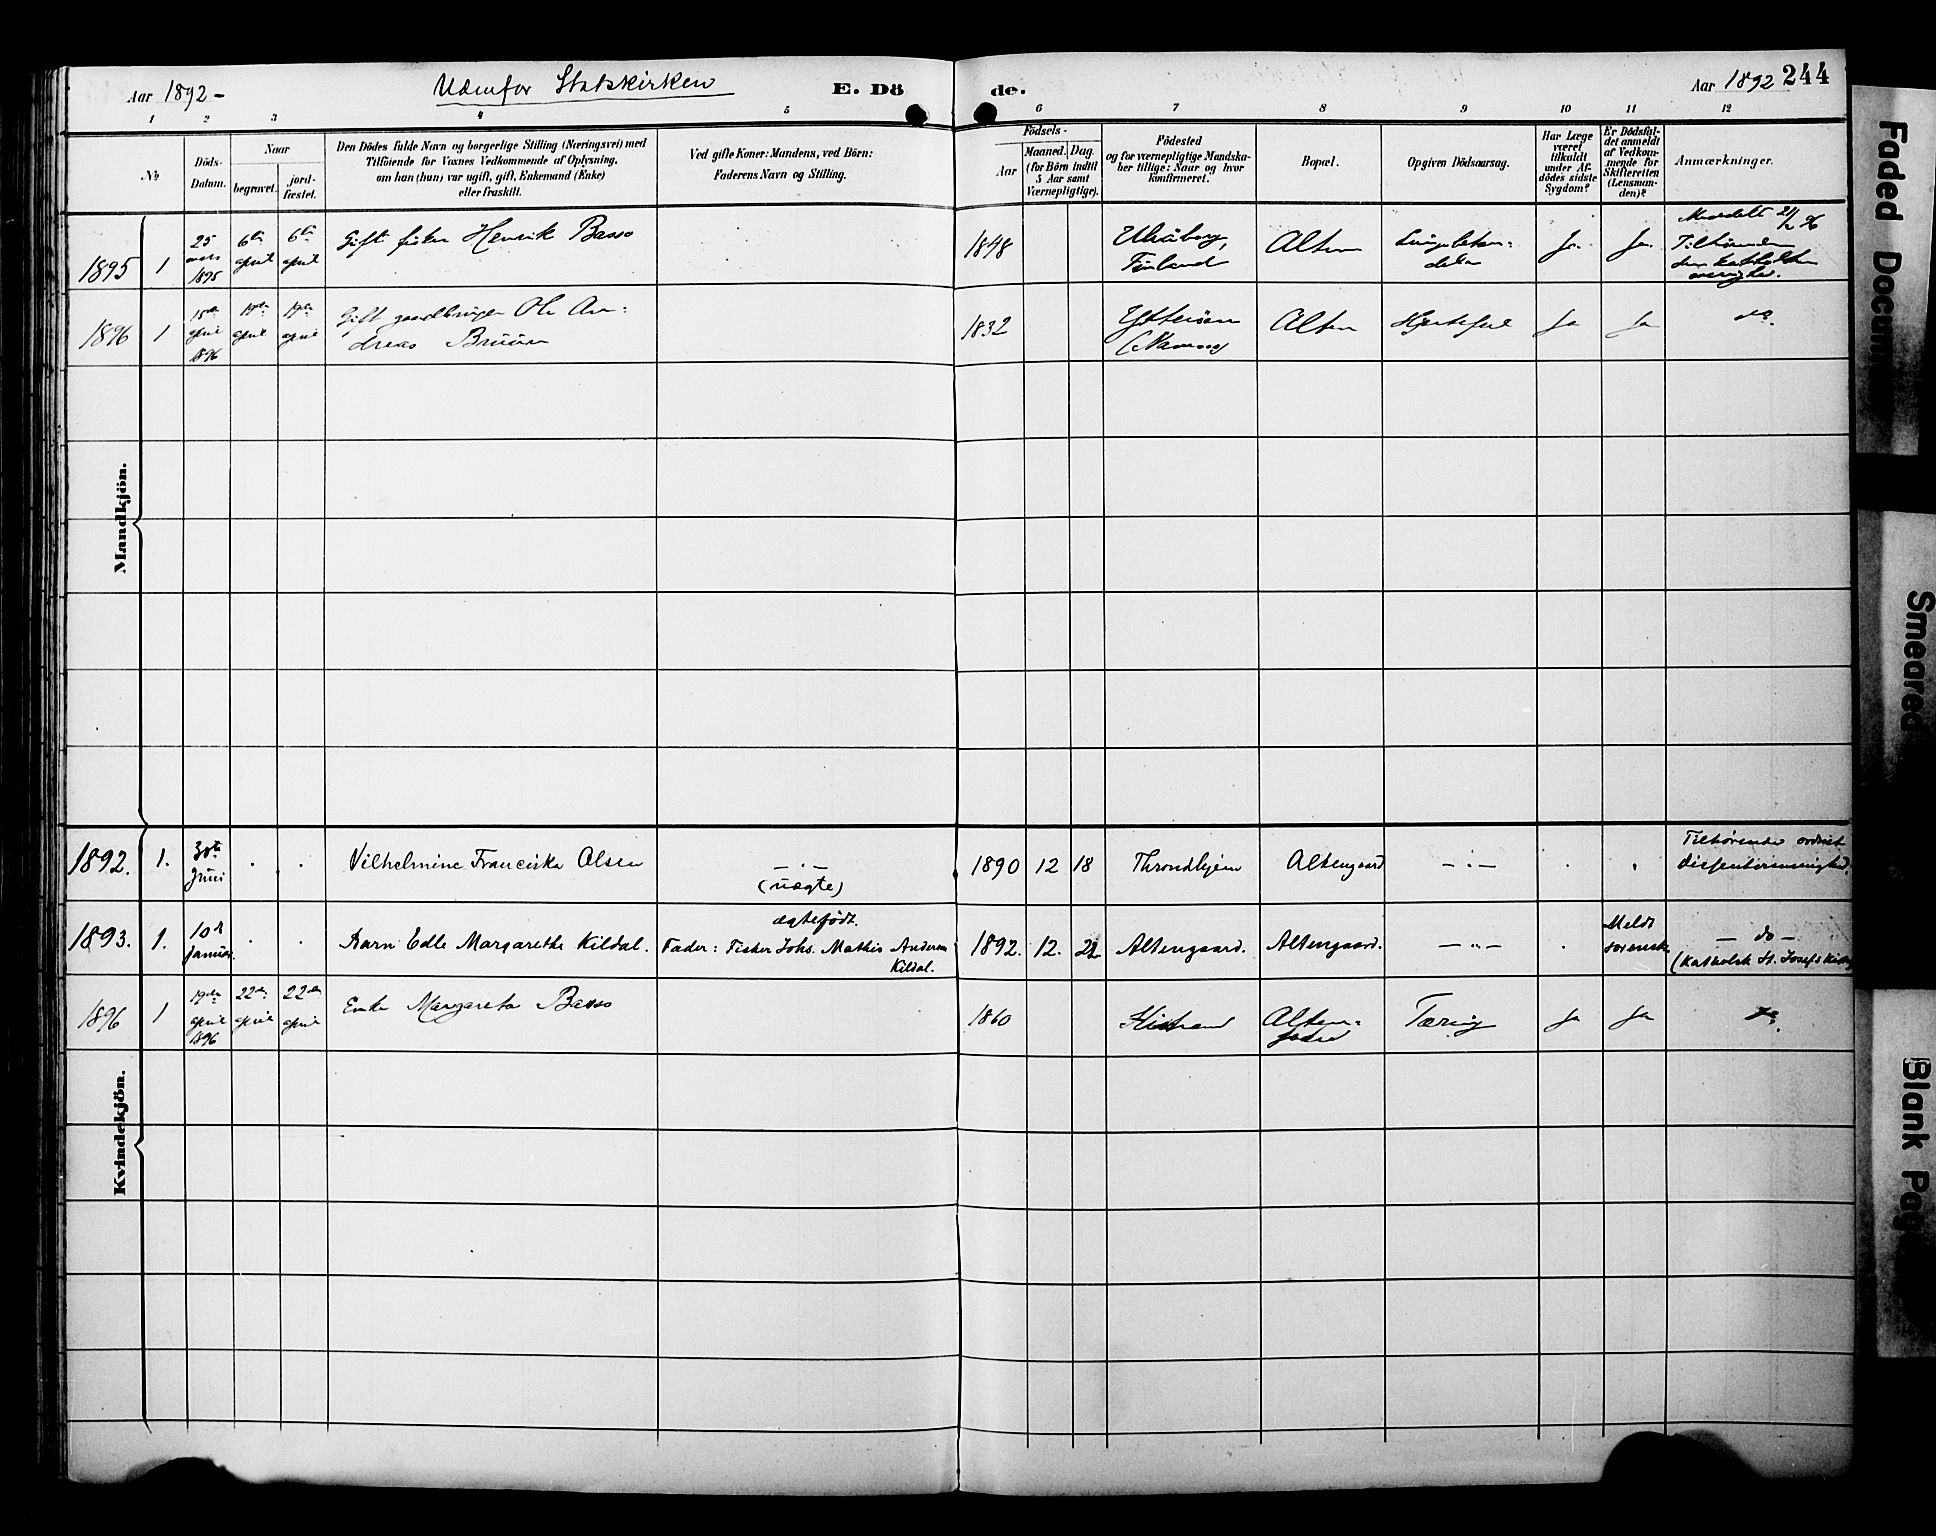 Aar 1892 -
Udenfor Statskirken
E. Dö
de.
Aar 1892
244
1 2 3 4 5 6 7 8 9 10 11 12
No
Döds-
Datum.
Naar
begravet.
jord-
fæstet.
Den Dödes fulde Navn og borgerlige Stilling (Næringsvei) med
Tilföiende for Voxnes Vedkommende af Oplysning,
om han (hun) var ugift, gift, Enkemand (Enke)
eller fraskilt.
Ved gifte Koner: Mandens, ved Börn:
Faderens Navn og Stilling.
Födsels-
Aar
Maaned. Dag.
(for Börn indtil
5 Aar samt
Værnepligtige).
Födested
og for værnepligtige Mandska-
ber tillige: Naar og hvor
konfirmeret.
Bopæl.
Opgiven Dödsaarsag.
Har Læge
været
tilkaldt
under Af-
dödes sidste
Sygdom?
Er Dödsfal-
det anmeldt
af Vedkom-
mende for
Skifteretten
(Lensman-
den)?
Anmærkninger.
Mandkjön.
1895 1
25
mars
1895
6te
april
6te
april
Gift fisker Henrik Basso
1848
Uleåborg,
Finland
Alten
Ja
Ja
Meddelt 21/ 96
Tilhørende
den katholske
menighed.
1896 1
15de
april
1896
19de
april
19de
april
Gift gaardbruger Ole An-
dreas Bruun
1832
Ytterøen
Alten
Hjertefeil
Ja
Ja
do.
Kvindekjön.
1892. 1.
30te
Juni
Vilhelmine Franciska Olsen
— . —
(uægte)
1890 12 18
Throndhjem
Altengaard
— . —
Tilhørende ordnet
dissentermenighed.
1893. 1.
10de
Januar.
Karn Edle Margarethe Kildal.
ægtefødt.
Fader: Fisker Johs. Mathis Andersen
Kildal.
1892. 12. 22
Altengaard.
Altengaard.
— " —
Meldt
— do —
(Katholsk St. Josefs Kirke)
1896 1
19de
april
1896
22de
april
22de
april
Enke Margareta Basso
1860
Kistrand
Alten-
Tæring
Ja
Ja
do.
Faded Document
Smeared
Blank Pag